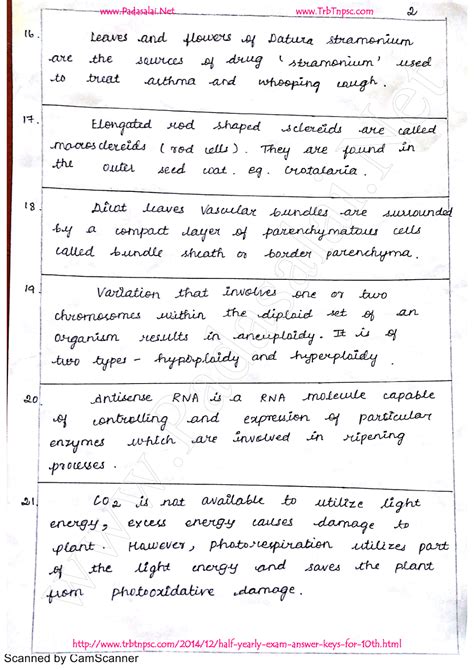 www.Padasalai.Net www.TrbTnpsc.com 2
16. Leaves and flowers of Datura stramonium
are the sources of drug 'stramonium' used
to treat asthma and whooping cough.
17. Elongated rod shaped sclereids are called
macrosclereids (rod cells). They are found in
the outer seed coat. eg. Crotalaria.
18. Dicot leaves Vascular bundles are surrounded
by a compact layer of parenchymatous cells
called bundle sheath or border parenchyma.
19. Variation that involves one or two
chromosomes within the diploid set of an
organism results in aneuploidy. It is of
two types - hypoploidy and hyperploidy
20. Antisense RNA is a RNA molecule capable
of controlling and expression of particular
enzymes which are involved in ripening
processes.
21. CO2 is not available to utilize light
energy, excess energy causes damage to
plant. However, photorespiration utilizes part
of the light energy and saves the plant
from photooxidative damage.
www.Padasalai.Net
http://www.trbtnpsc.com/2014/12/half-yearly-exam-answer-keys-for-10th.html
Scanned by CamScanner